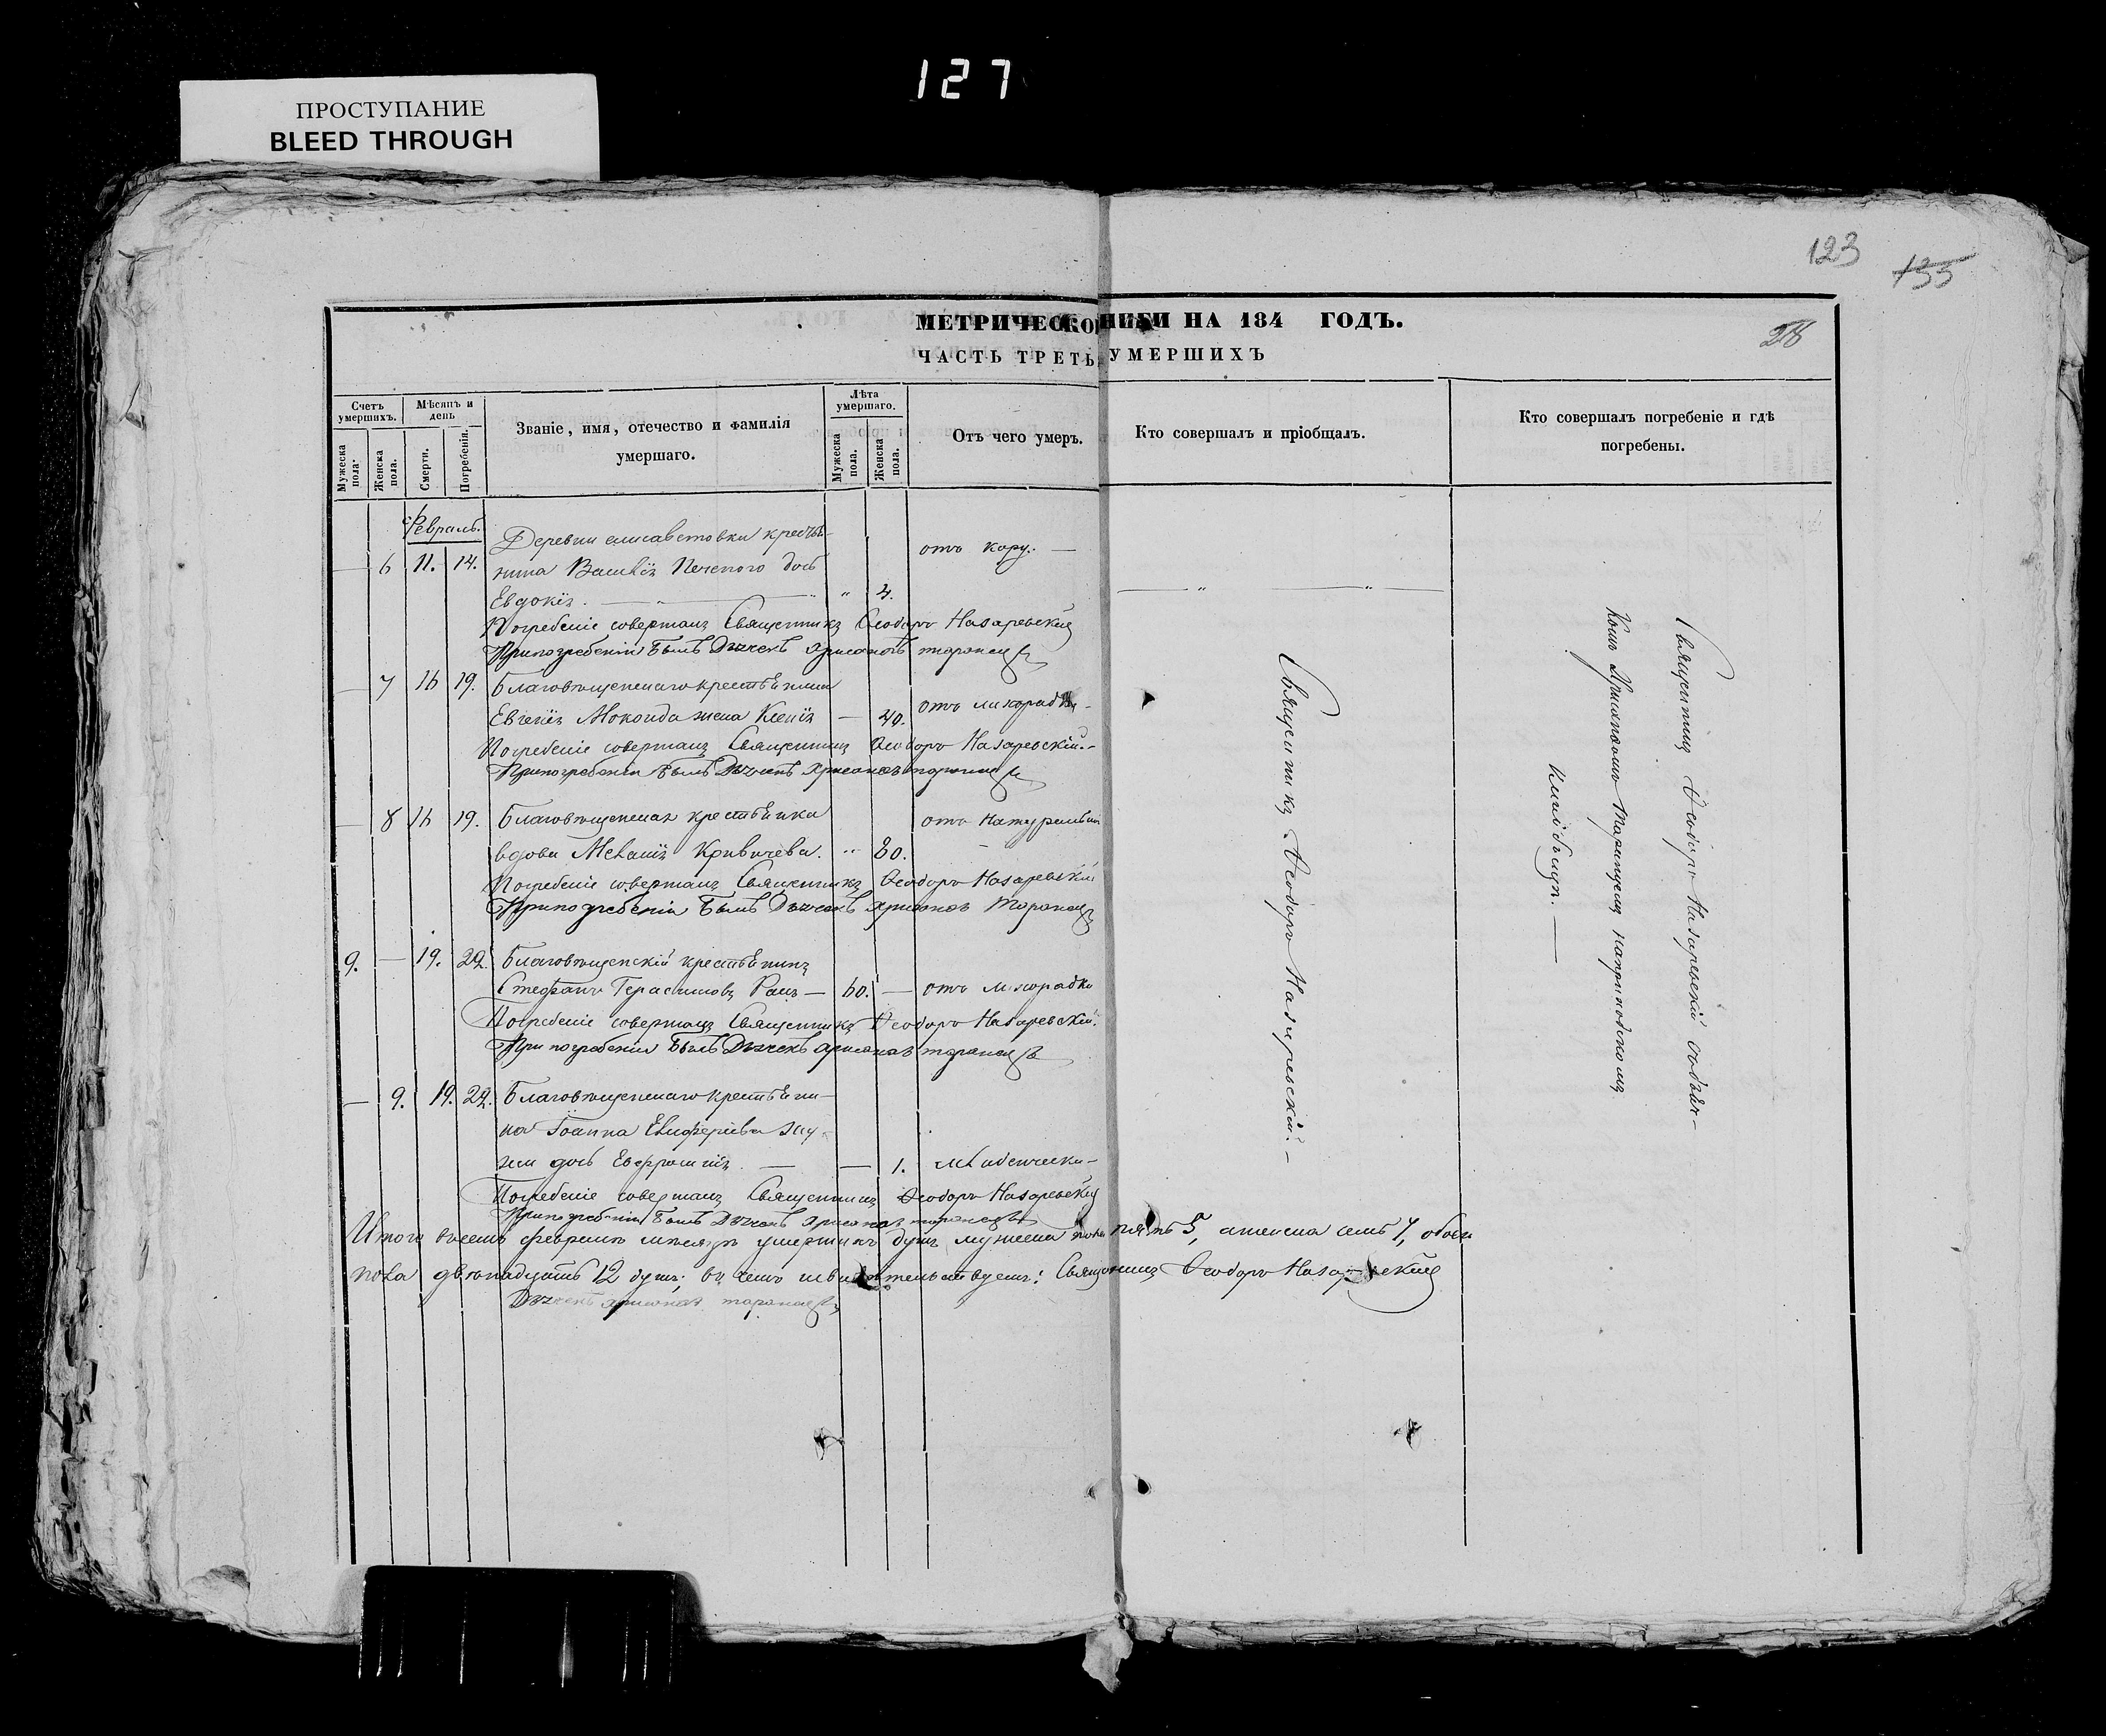 127
ПРОСТУПАНИЕ
BLEED THROUGH
123
135
28
МЕТРИЧЕСКОЙ КНИГИ НА 184 ГОДЪ.
ЧАСТЬ ТРЕТЬЯ УМЕРШИХЪ
Счетъ умершихъ.
Мужеска пола.
Женска пола.
Мѣсяцъ и день
Смерти.
Погребенія.
Званіе, имя, отечество и фамилія умершаго.
Лѣта умершаго.
Мужеска пола.
Женска пола.
Отъ чего умеръ.
Кто совершалъ и пріобщалъ.
Кто совершалъ погребеніе и гдѣ погребены.
Февраль.
— 6 11. 14. Деревни елисаветовки кресть-
отъ кору. —
Евдокія. — " 4.
Погребеніе совершалъ Священникъ Ѳеодоръ Назаревскій
При погребеніи былъ Дьячекъ
— 7 16 19. Благовѣщенскаго крестьянина
жена Ксенія — 40. отъ лихорадки
Погребеніе совершалъ Священникъ Ѳеодоръ Назаревскій.-
При погребеніи былъ Дьячекъ
— 8 16 19. Благовѣщенская крестьянка
вдова Меланія Кривичева. " 80. отъ натуральной
Погребеніе совершалъ Священникъ Ѳеодоръ Назаревскій
При погребеніи былъ Дьячекъ
9. — 19. 22. Благовѣщенскій крестьянинъ
Стефанъ Герасимовъ Рацъ — 60. — отъ лихорадки
Погребеніе совершалъ Священникъ Ѳеодоръ Назаревскій.
При погребеніи былъ Дьячекъ
— 9. 19. 22. Благовѣщенскаго крестьяни-
на Іоанна
дочь Евфросинія. — — 1. младенческой
Погребеніе совершалъ Священникъ Ѳеодоръ Назаревскій
При погребеніи былъ Дьячекъ
Итого въ семъ февралѣ мѣсяцѣ умершихъ душъ мужеска пола пять 5, а женска семь 7, обоего
пола двенадцать 12 душъ; въ чемъ и свидѣтельствуемъ: Священникъ Ѳеодоръ Назаревскій
Дьячекъ
Священникъ Ѳеодоръ Назаревскій.-
Священникъ Ѳеодоръ Назаревскій
на приходскомъ
кладбищѣ. —